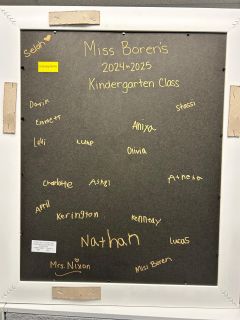 Selah
Miss Boren's
2024-2025
Kindergarten Class
Darin
Stassi
Emmett
Aniya
Lilli
Luke
Olivia
Charlotte
Asher
April
Kerington
Kennedy
Nathan
Lucas
Mrs. Nixon
Miss Boren